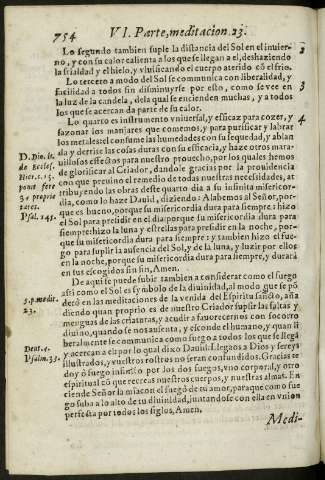 754 VI. Parte, meditacion 23.
Lo segundo tambien suple la distancia del Sol en el inuier-
no, y con su calor calienta a los que se llegan a el, deshaziendo
la frialdad y el hielo, y viuificando el cuerpo aterido cõ el frio.
Lo tercero a modo del Sol se comunica con liberalidad, y
facilidad a todos sin disminuyrse por esto, como se vee en
la luz de la candela, dela qual se encienden muchas, y a todos
los que se acercan da parte de su calor.
Lo quarto es instrumento vniuersal, y efficaz para cozer, y
sazonar los manjares que comemos, y para purificar, y labrar
los metales: el consume las humedades con su sequedad, y ablan
da y derrite las cosas duras con su efficacia, y haze otros mara-
uillosos effectos para nuestro prouecho, por los quales hemos
de glorificar al Criador, dandole gracias por la prouidencia
con que preuino el remedio de todas nuestras necessidades, at
tribuyendo las obras deste quarto dia a su infinita misericor-
dia, como lo haze Dauid, diziendo: Alabemos al Señor, por-
que es bueno, porque su misericordia dura para siempre: hizo
el Sol para presidir en el dia: porque su misericordia dura para
siempre: hizo la luna y estrellas para presidir en la noche, por-
que su misericordia dura para siempre: y tambien hizo el fue-
go para suplir la ausencia del Sol, y de la luna, y luzir por ellos
en la noche, porque su misericordia dura para siempre, y durarà
en tus escogidos sin fin, Amen.
De aqui se puede subir tambien a considerar como el fuego
assi como el Sol es symbolo de la diuinidad, al modo que se põ
derò en las meditaciones de la venida del Espiritu sancto, aña
diendo quan proprio es de nuestro Criador suplir las faltas y
menguas de las criaturas, y acudir a fauorecernos con socorro
diuino, quando se nos ausenta, y esconde el humano, y quan li
beralmente se comunica como fuego a todos los que se llegã
y acercan a el: por lo qual dixo Dauid: Llegaos a Dios y sereys
illustrados, y vuestros rostros no seran confundidos. Gracias te
doy ô fuego infinito por los dos fuegos, vno corporal, y otro
espiritual cõ que recreas nuestros cuerpos, y nuestras almas. En
ciende Señor la mia con el fuego de tu amor, para que como fue
go suba a lo alto de tu diuinidad, juntandose con ella en vnion
perfecta por todos los siglos, Amen.
Medi-
2
3
4
D. Dio. li.
de Ecclef.
Hier. c. 15.
pone fere
proprie
tates.
Psal. 145.
5. p. medit.
23.
Deut. 4.
Psalm. 33.